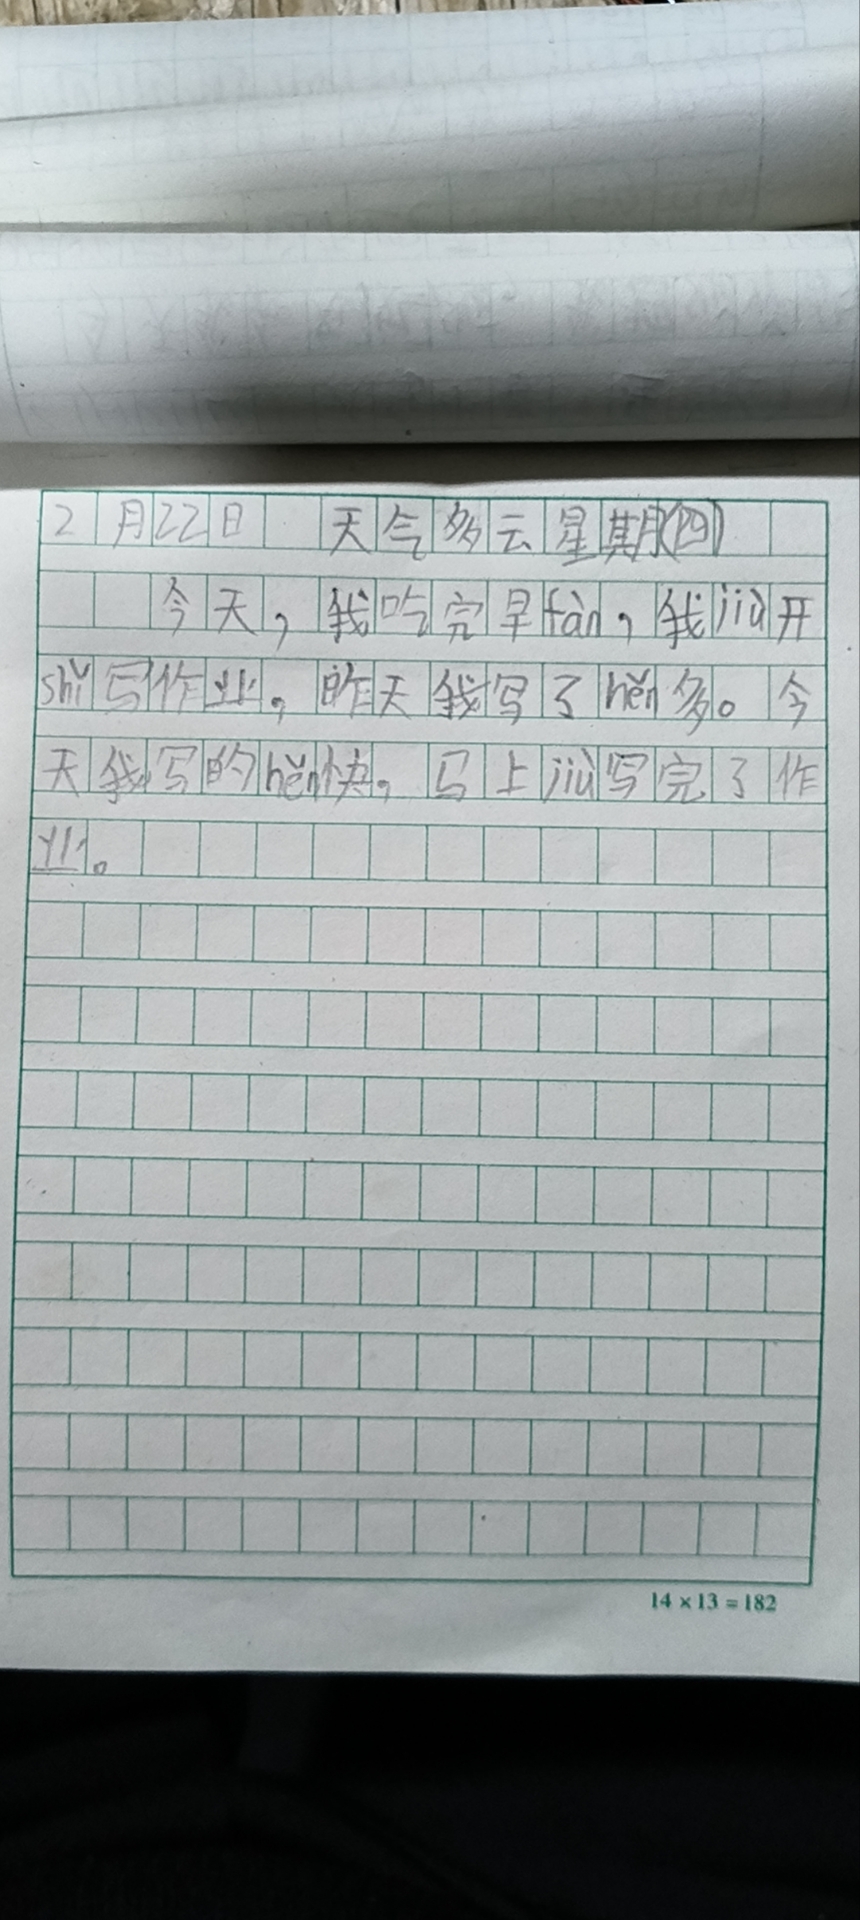 2月22日 天气多云星期(四)
今天，我吃完早fàn，我jiù开
shǐ写作业，昨天我写了hěn多。今
天我写的hěn快，马上jiù写完了作
业。
14×13=182